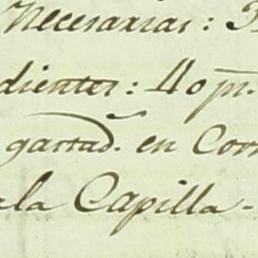 Necesarias: 3
dientes: 40 p.
gastad. en Cor
ala Capilla -